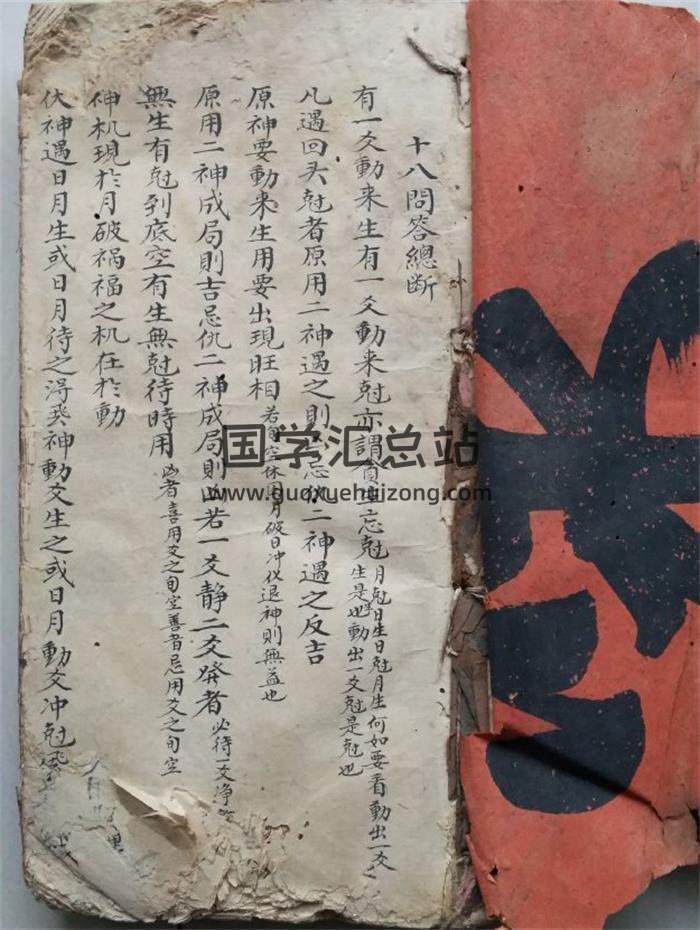 十八問答總斷
有一爻動来生有一爻動来尅亦謂貪生忘尅月尅日生日尅月生何如要看動出一爻
生是生也動出一爻尅是尅也
凡遇回头尅者原用二神遇之則忌仇二神遇之反吉
原神要動来生用要出現旺相若旬空休囚月破日冲化退神則無益也
原用二神成局則吉忌仇二神成局則凶若一爻靜二爻發者必待一爻
無生有尅到底空有生無尅待時用凶者喜用爻之旬空善者忌用爻之旬空
神机現於月破祸福之机在於動
伏神遇日月生或日月待之得飛神動爻生之或日月動爻冲尅飛
国学汇总站
www.guoxuehuizong.com